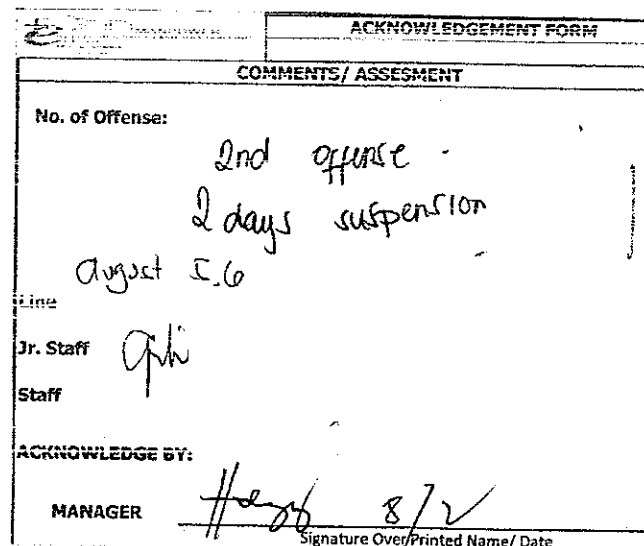 ACKNOWLEDGEMENT FORM
COMMENTS/ ASSESMENT
No. of Offense:
2nd offense -
2 days suspension
August 5,6
Line
Jr. Staff
Staff
ACKNOWLEDGE BY:
MANAGER 8/2
Signature Over Printed Name/ Date